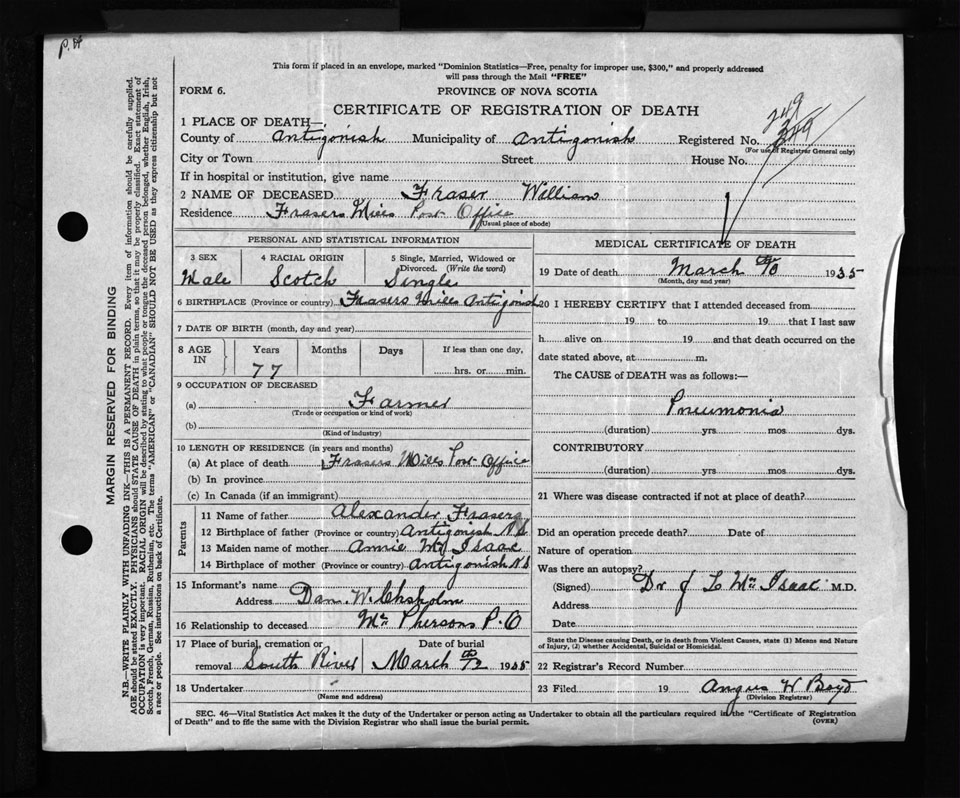 P. 84
This form if placed in an envelope, marked "Dominion Statistics—Free, penalty for improper use, $300," and properly addressed
will pass through the Mail "FREE"
FORM 6. PROVINCE OF NOVA SCOTIA
CERTIFICATE OF REGISTRATION OF DEATH
249
349
1 PLACE OF DEATH—
County of Antigonish Municipality of Antigonish Registered No.
(For use of Registrar General only)
City or Town Street House No.
If in hospital or institution, give name
2 NAME OF DECEASED Fraser William
Residence Frasers Mills Post Office
(Usual place of abode)
PERSONAL AND STATISTICAL INFORMATION
3 SEX 4 RACIAL ORIGIN 5 Single, Married, Widowed or
Divorced. (Write the word)
Male Scotch Single
6 BIRTHPLACE (Province or country) Frasers Mills Antigonish
7 DATE OF BIRTH (month, day and year)
8 AGE IN Years Months Days If less than one day,
77 hrs. or min.
9 OCCUPATION OF DECEASED
(a) Farmer
(Trade or occupation or kind of work)
(b)
(Kind of industry)
10 LENGTH OF RESIDENCE (in years and months)
(a) At place of death Frasers Mills Post Office
(b) In province
(c) In Canada (if an immigrant)
Parents
11 Name of father Alexander Frasers
12 Birthplace of father (Province or country) Antigonish N S
13 Maiden name of mother Annie Mc Isaac
14 Birthplace of mother (Province or country) Antigonish N S
15 Informant's name
Address Dan. W. Chsholm
16 Relationship to deceased Mc Phersons P.O
17 Place of burial, cremation or Date of burial
removal South River March 12th 1935
18 Undertaker
(Name and address)
MEDICAL CERTIFICATE OF DEATH
19 Date of death March 10th 1935
(Month, day and year)
20 I HEREBY CERTIFY that I attended deceased from
19 to 19 that I last saw
h alive on 19 and that death occurred on the
date stated above, at m.
The CAUSE of DEATH was as follows:—
Pneumonia
(duration) yrs mos dys.
CONTRIBUTORY
(duration) yrs mos dys.
21 Where was disease contracted if not at place of death?
Did an operation precede death? Date of
Nature of operation
Was there an autopsy?
(Signed) Dr J L Mc Isaac M.D.
Address
Date
State the Disease causing Death, or in death from Violent Causes, state (1) Means and Nature
of Injury, (2) whether Accidental, Suicidal or Homicidal.
22 Registrar's Record Number
23 Filed 19 Angus W Boyd
(Division Registrar)
SEC. 46—Vital Statistics Act makes it the duty of the Undertaker or person acting as Undertaker to obtain all the particulars required in the "Certificate of Registration
of Death" and to file the same with the Division Registrar who shall issue the burial permit. (OVER)
MARGIN RESERVED FOR BINDING
N.B.—WRITE PLAINLY WITH UNFADING INK—THIS IS A PERMANENT RECORD. Every item of information should be carefully supplied.
AGE should be stated EXACTLY. PHYSICIANS should STATE CAUSE OF DEATH in plain terms, so that it may be properly classified. Exact statement of
OCCUPATION is very important. RACIAL ORIGIN will be described by stating to what people or tongue the deceased person belonged, whether English, Irish,
Scotch, French, German, Russian, Ruthenian, etc. The terms "AMERICAN" or "CANADIAN" SHOULD NOT BE USED as they express citizenship but not
a race or people. See instructions on back of Certificate.